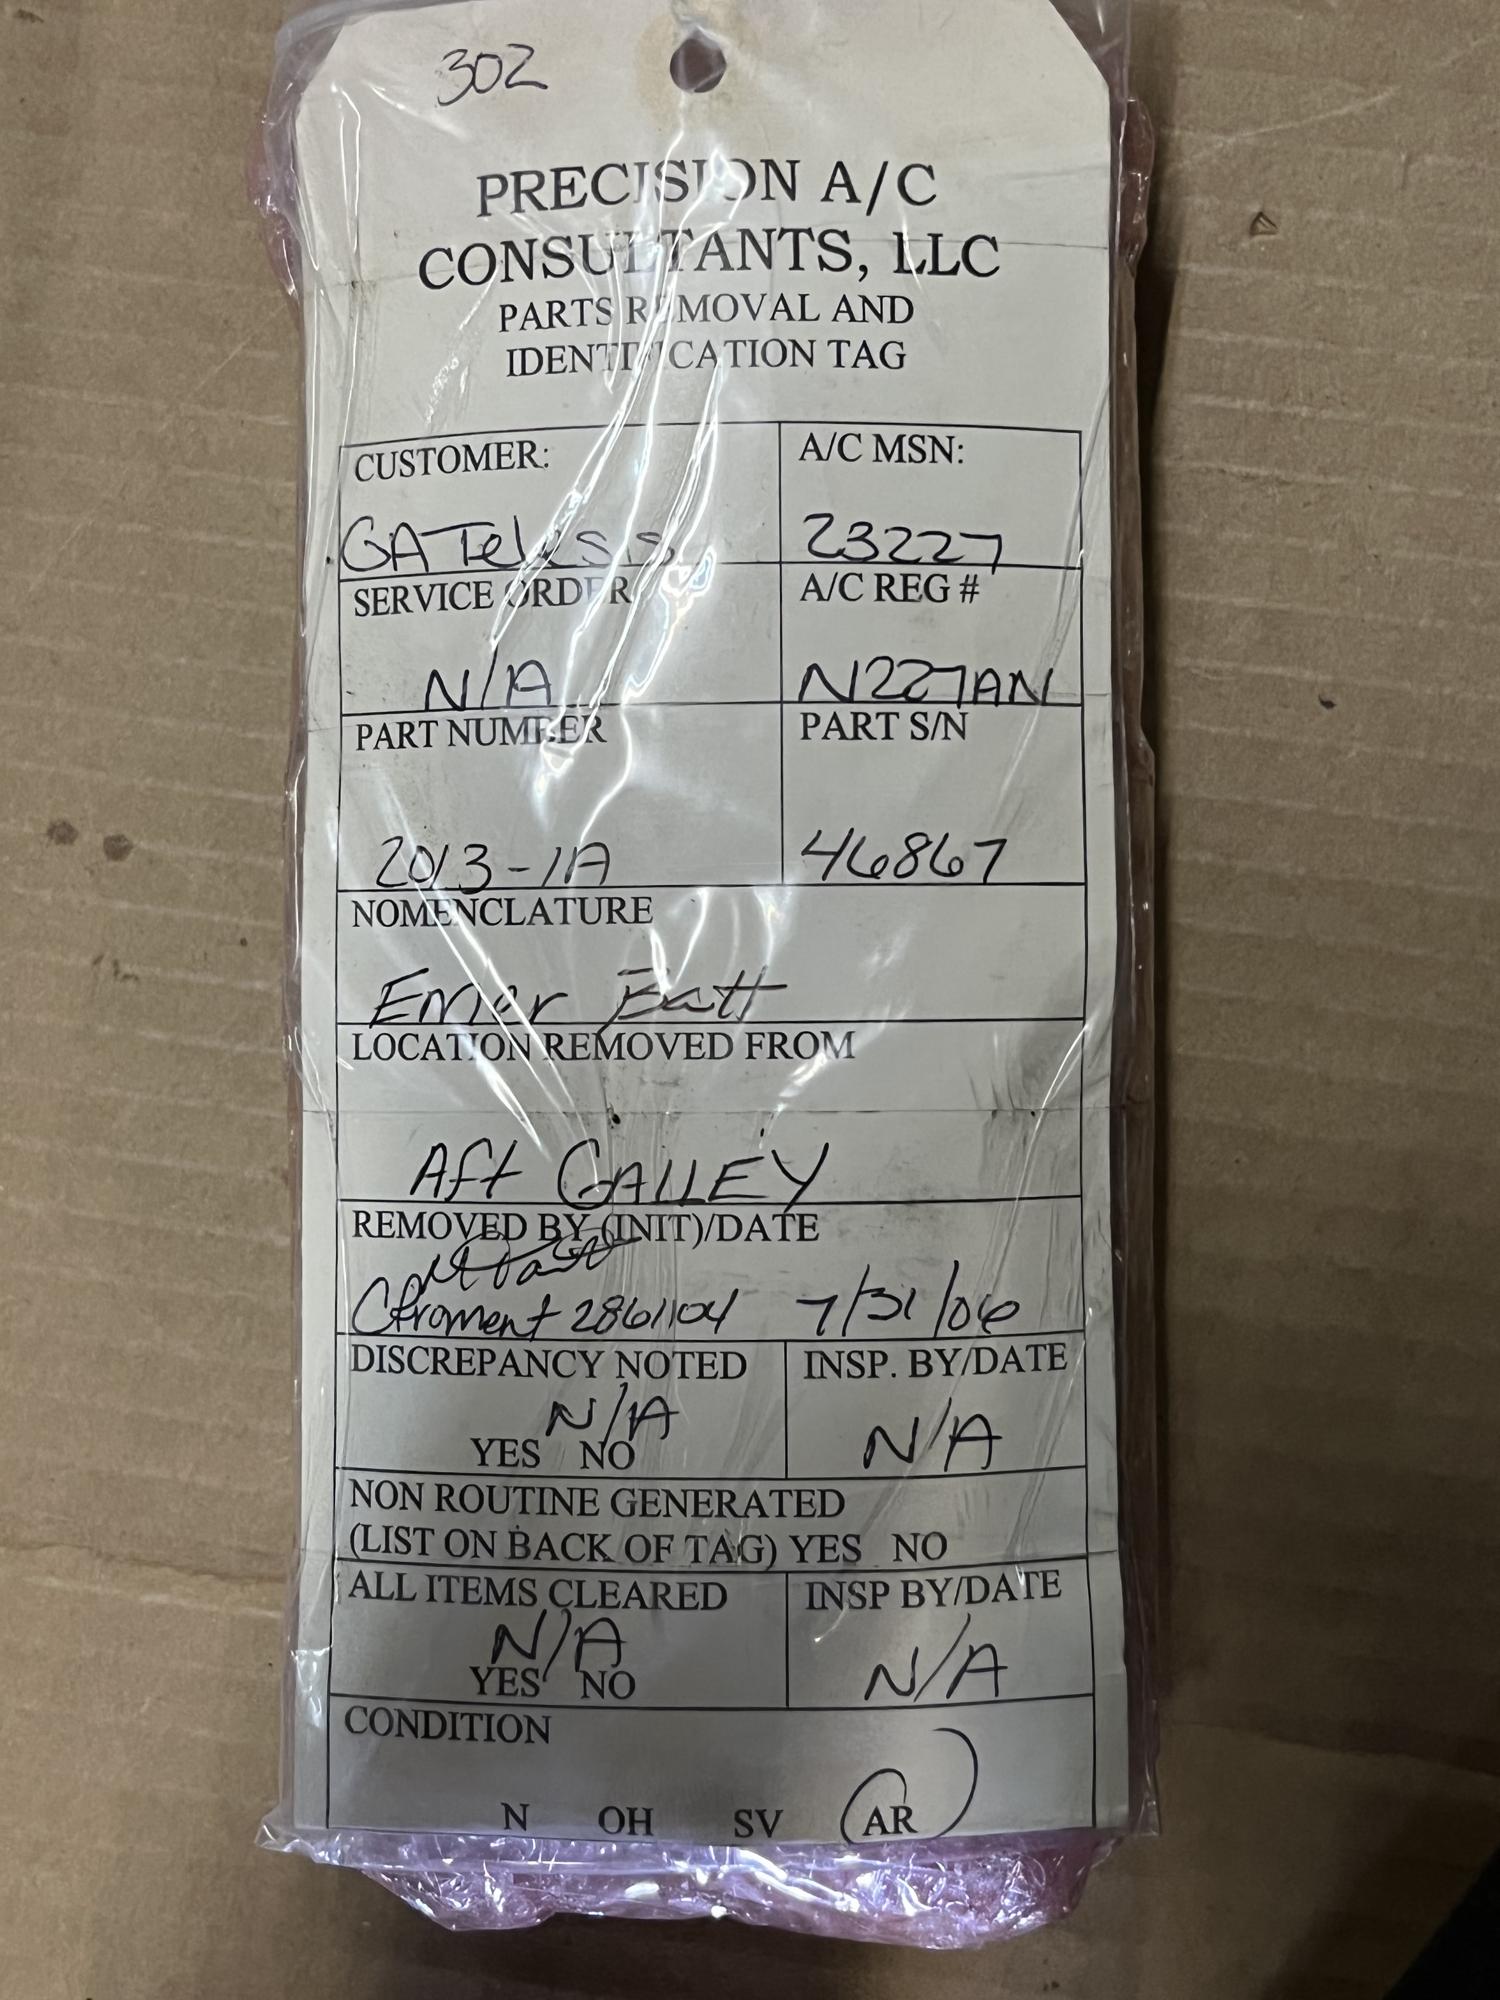 302
PRECISION A/C
CONSULTANTS, LLC
PARTS REMOVAL AND
IDENTIFICATION TAG
CUSTOMER:
GA Telesis
A/C MSN:
23227
SERVICE ORDER
N/A
A/C REG #
N227AN
PART NUMBER
2013-1A
PART S/N
46867
NOMENCLATURE
Emer Batt
LOCATION REMOVED FROM
Aft GALLEY
REMOVED BY (INIT)/DATE
2861104 7/31/06
DISCREPANCY NOTED
N/A
YES NO
INSP. BY/DATE
N/A
NON ROUTINE GENERATED
(LIST ON BACK OF TAG) YES NO
ALL ITEMS CLEARED
N/A
YES NO
INSP BY/DATE
N/A
CONDITION
N OH SV AR